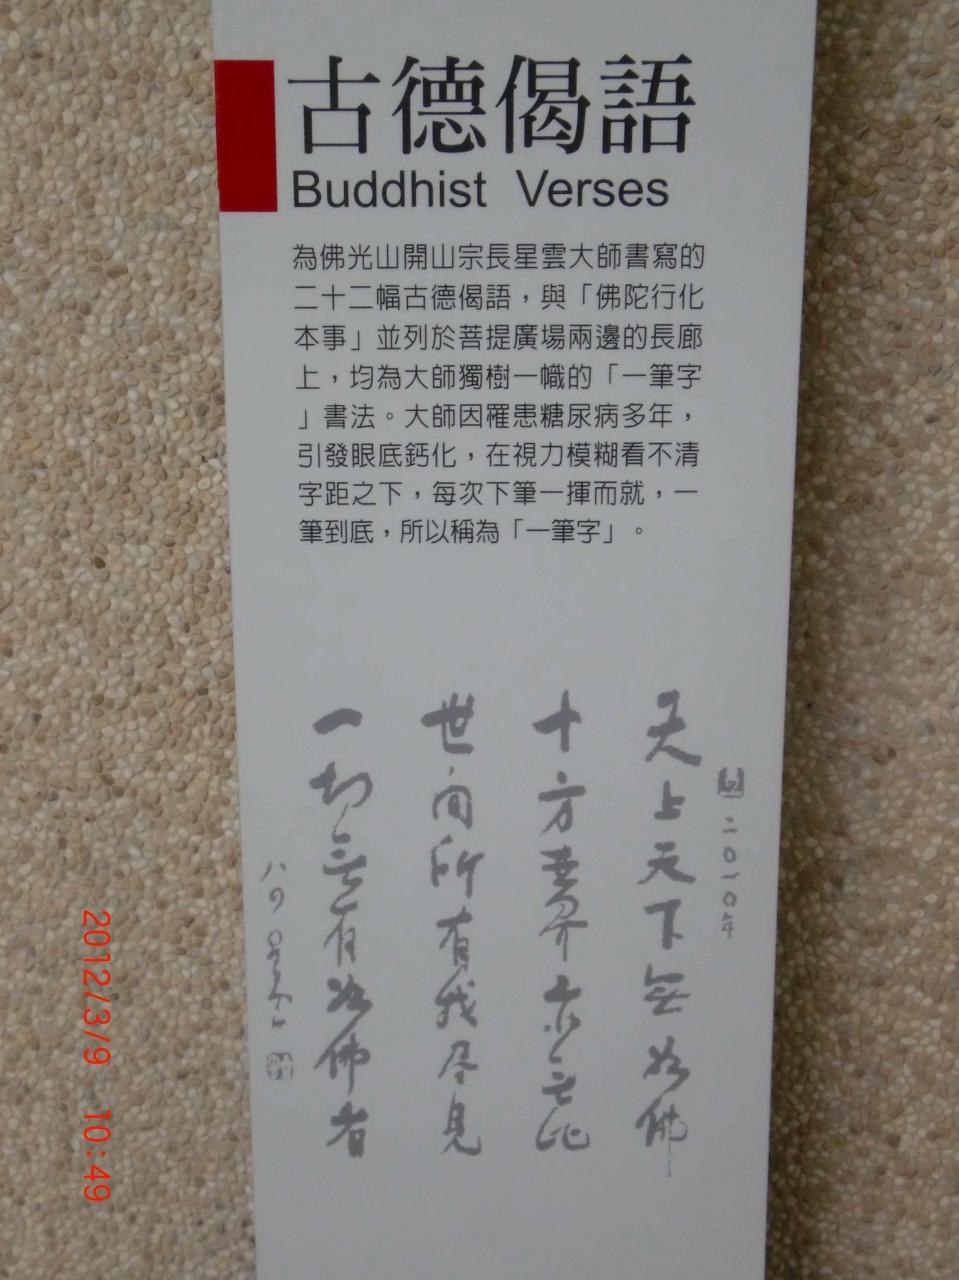 古德偈語
Buddhist Verses
為佛光山開山宗長星雲大師書寫的
二十二幅古德偈語，與「佛陀行化
本事」並列於菩提廣場兩邊的長廊
上，均為大師獨樹一幟的「一筆字
」書法。大師因罹患糖尿病多年，
引發眼底鈣化，在視力模糊看不清
字距之下，每次下筆一揮而就，一
筆到底，所以稱為「一筆字」。
二〇一〇年
天上天下無如佛
十方世界亦无比
世间所有我尽見
一切无有如佛者
2012/3/9 10:49